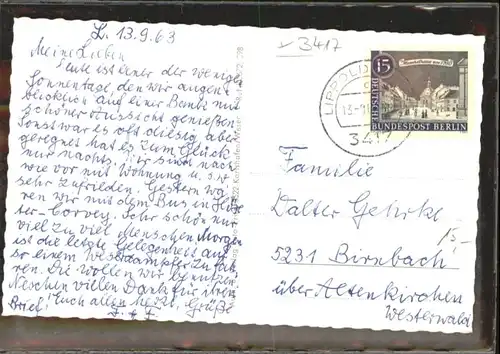 L. 13.9.63
Meine Lieben
Heute ist einer der wenigen
Sonnentage, den wir augen-
blicklich auf einer Bank mit
schöner Aussicht genießen.
Sonst war es oft diesig, aber
geregnet hat es zum Glück
nur nachts. Wir sind nach
wie vor mit Wohnung u. s.w
sehr zufrieden. Gestern wa
ren wir mit dem Bus in Höx
ter-Corvey. Sehr schön nur
viel zu viel Menschen. Morgen
ist die letzte Gelegenheit auf
so einem Weserdampfer zu fah
ren. Die wollen wir benutzen.
Vielen Dank für Ihren
Brief! Euch allen herzl. Grüße
3417
15
DEUTSCHE
BUNDESPOST BERLIN
LIPPOLD
3417
Familie
Walter Gehrke
5231 Birnbach
über Altenkirchen
Westerwald
15,-